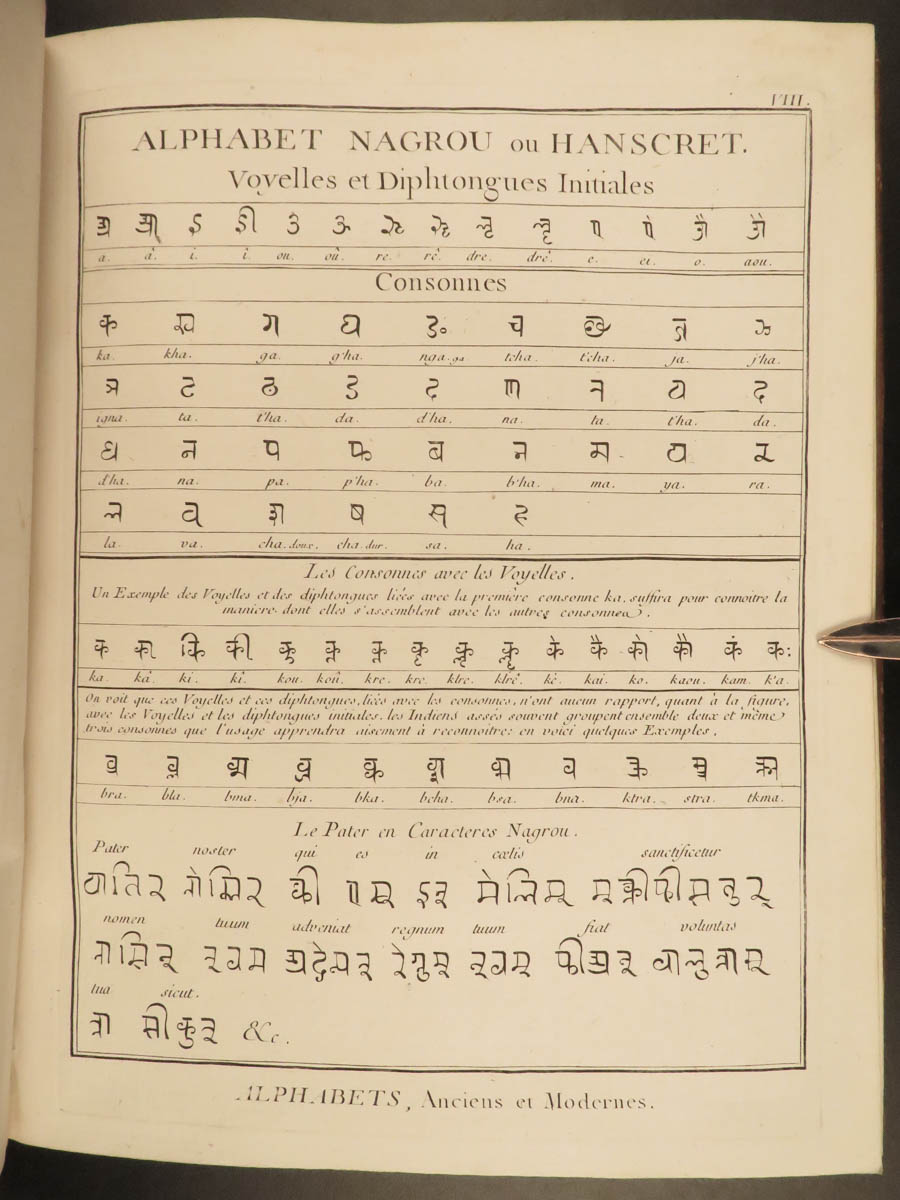 VIII.
ALPHABET NAGROU ou HANSCRET.
Voyelles et Diphtongues Initiales
अ आ इ ई उ ऊ ऋ ॠ ऌ ॡ ए ऐ ओ औ
a. â. i. î. ou. oû. re. rê. dre. drê. e. ei. o. aou.
Consonnes
क ख ग घ ङ च छ ज झ
ka. kha. ga. g'ha. nga-ga tcha. t'cha. ja. j'ha.
ञ ट ठ ड ढ ण त थ द
igna. ta. t'ha. da. d'ha. na. ta. t'ha. da.
ध न प फ ब भ म य र
d'ha. na. pa. p'ha. ba. b'ha. ma. ya. ra.
ल व श ष स ह
la. va. cha.doux. cha.dur. sa. ha.
Les Consonnes avec les Voyelles.
Un Exemple des Voyelles et des diphtongues liées avec la première consonne ka, suffira pour connoitre la
maniere dont elles s'assemblent avec les autres consonnes.
क का कि की कु कू कृ कॄ कॢ कॣ के कै को कौ कं कः
ka. kâ. ki. kî. kou. koû. kre. kre. klre. klrê. kê. kai. ko. kaou. kam. k'a.
On voit que ces Voyelles et ces diphtongues, liées avec les consonnes, n'ont aucun rapport, quant à la figure,
avec les Voyelles et les diphtongues initiales. les Indiens assés souvent groupent ensemble deux et même
trois consonnes que l'usage apprendra aisement à reconnoitre: en voici quelques Exemples.
bra. bla. bma. bja. bka. bcha. bsa. bna. ktra. stra. tkma.
Le Pater en Caracteres Nagrou.
Pater noster qui es in cœlis sanctificetur
nomen tuum adveniat regnum tuum fiat voluntas
tua sicut.
&c.
ALPHABETS, Anciens et Modernes.